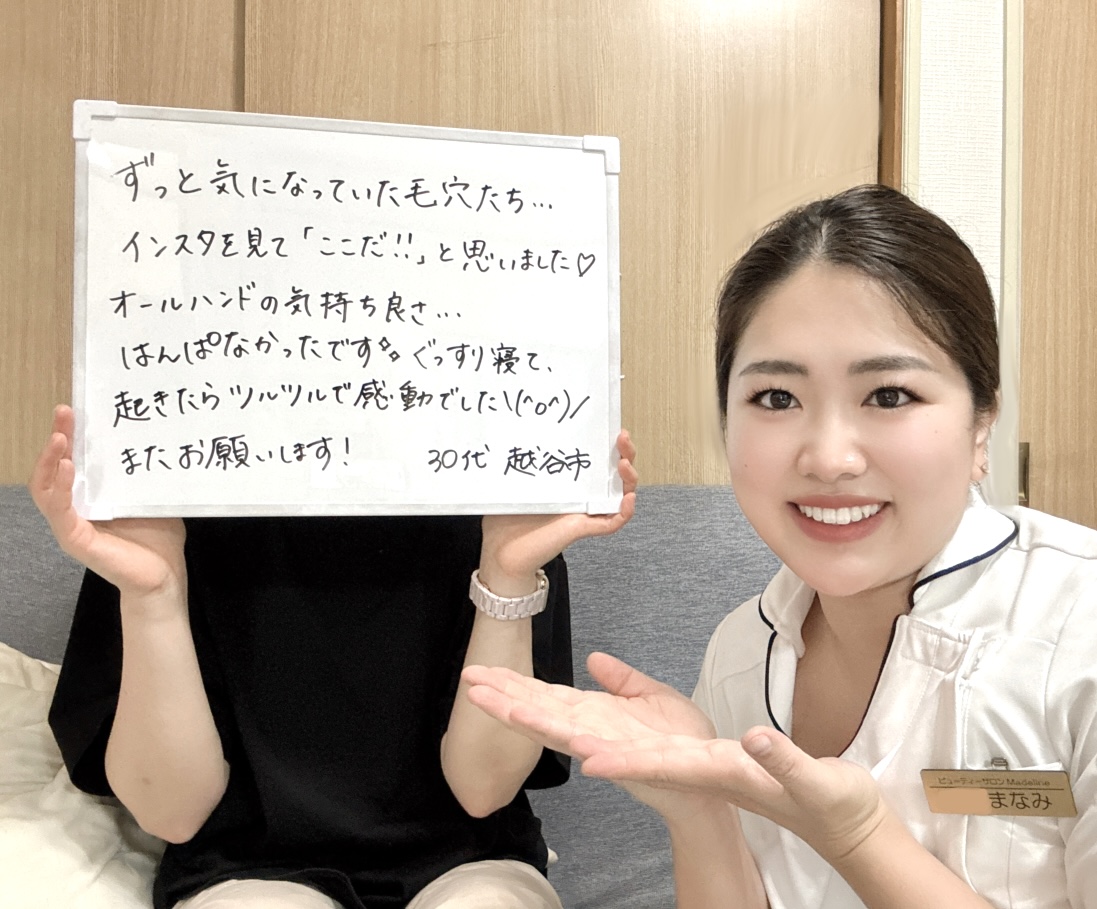 ずっと気になっていた毛穴たち...
インスタを見て「ここだ!!」と思いました♡
オールハンドの気持ち良さ...
はんぱなかったです✨ぐっすり寝て、
起きたらツルツルで感動でした\(^o^)/
またお願いします!　30代 越谷市
ビューティーサロンMadeline
まなみ